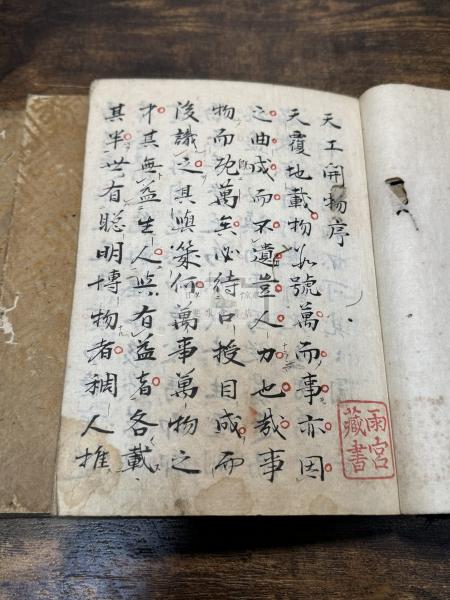 天工開物序
天覆地載物数號萬而事亦因
之曲成而不遺豈人力也哉事
物而萬矣必待口授目成而
後識之其與何萬事萬物之
中其無益生人與有益者各載
其半世有聰明博物者稠人推
雨宮
藏書